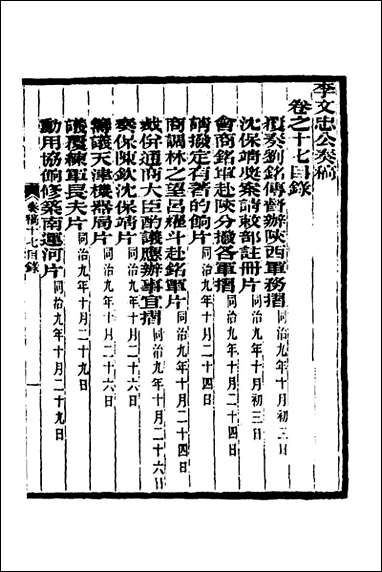 李文忠公奏稿
卷之十七目錄
覆奏劉銘傳督辦陝西軍務摺同治九年十月初三日
沈保靖獎案請敕部註冊片同治九年十月初三日
會商銘軍赴陝分撥各軍摺同治九年十月二十四日
請撥定有著的餉片同治九年十月二十四日
商調林之望呂耀斗赴銘軍片同治九年十月二十四日
裁併通商大臣酌議應辦事宜摺同治九年十月二十六日
奏保陳欽沈保靖片同治九年十月二十六日
籌議天津機器局片同治九年十月二十六日
議覆練軍長夫片同治九年十月二十九日
動用協餉修築南運河片同治九年十月二十九日
奏稿十七目錄
一